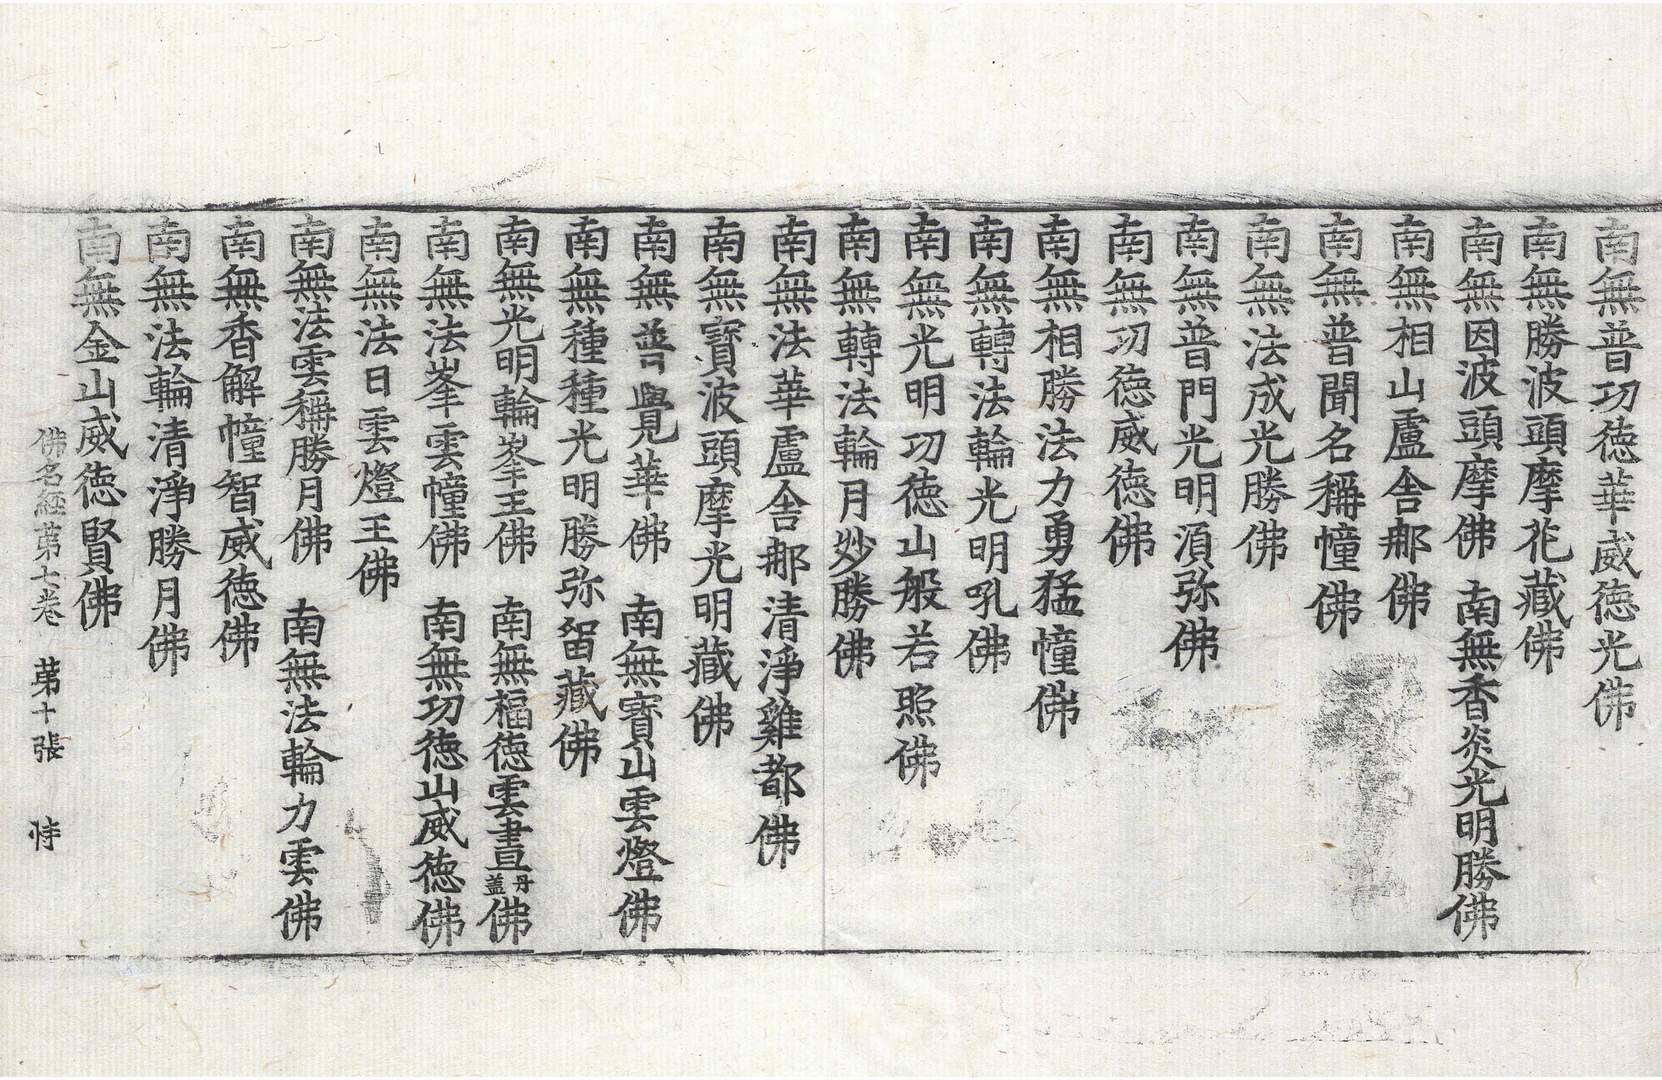 南無普功徳華威徳光佛
南無勝波頭摩花藏佛
南無因波頭摩佛　南無香炎光明勝佛
南無相山盧舍那佛
南無普聞名稱幢佛
南無法成光勝佛
南無普門光明湏弥佛
南無功徳威徳佛
南無相勝法力勇猛幢佛
南無轉法輪光明吼佛
南無光明功徳山般若照佛
南無轉法輪月妙勝佛
南無法華盧舍那清淨雞都佛
南無寶波頭摩光明藏佛
南無普覺華佛　南無寶山雲燈佛
南無種種光明勝弥留藏佛
南無光明輪峯王佛　南無福徳雲晝丹盖佛
南無法峯雲幢佛　南無功徳山威徳佛
南無法日雲燈王佛
南無法雲稱勝月佛　南無法輪力雲佛
南無香解幢智威徳佛
南無法輪清淨勝月佛
南無金山威徳賢佛
佛名經苐七卷　苐十張　恃